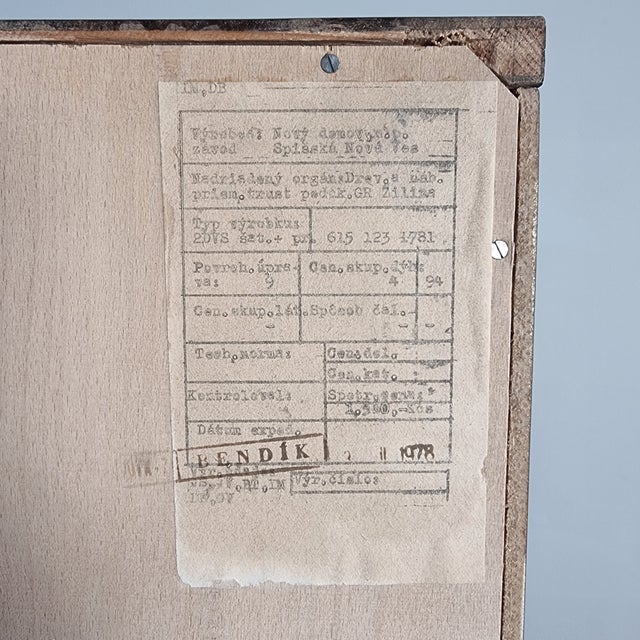 LM,DB
Výrobca: Nový domov,n.p.
závod Spišská Nová Ves
Nadriadený orgán:Drev.a náb.
priem.trust podik.GR Žilina
Typ výrobku:
2DVS šat.+ pr. 615 123 1781
Povrch.úpra- Cen.skup.dýh:
va: 9 4 94
Cen.skup.lát. Spôsob čal.
- - -
Tech.norma: Cen.del.
Cen.kat.
Kontroloval: Spotr.cena:
1.300,-Kčs
Dátum exped.
BENDÍK II 1978
Výr.čislo: